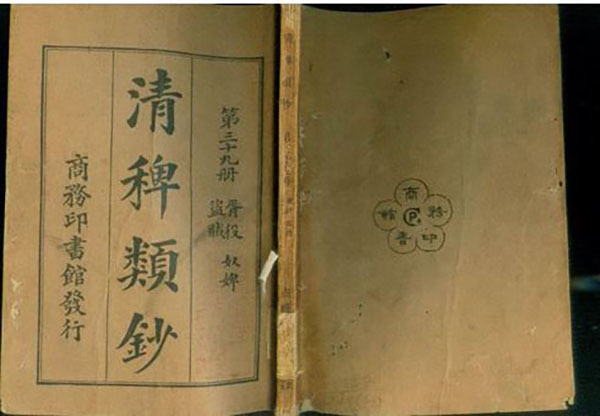 第三十九册
胥役 奴婢
盜賊
清稗類鈔
商務印書館發行
商務印書館
CP